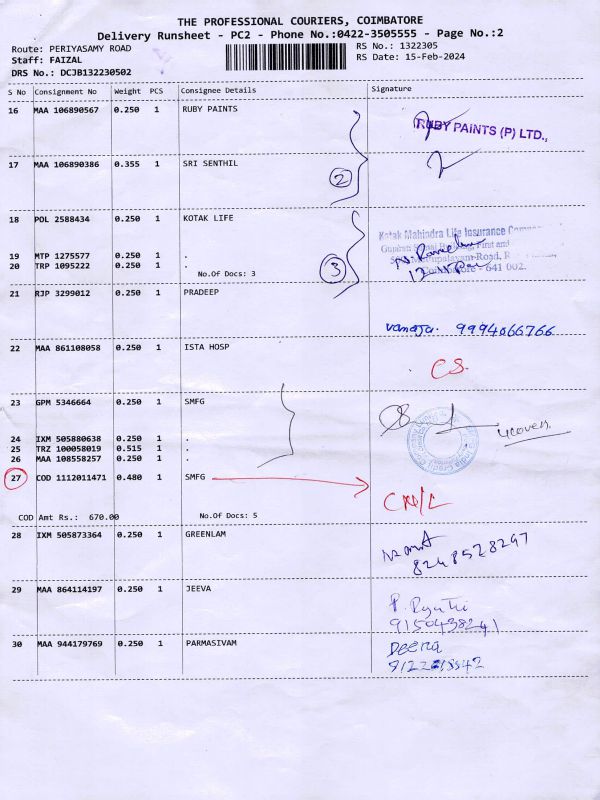 THE PROFESSIONAL COURIERS, COIMBATORE
Delivery Runsheet - PC2 - Phone No.:0422-3505555 - Page No.:2
Route: PERIYASAMY ROAD
RS No.: 1322305
Staff: FAIZAL
RS Date: 15-Feb-2024
DRS No.: DCJB132230502
S No Consignment No Weight PCS Consignee Details Signature
16 MAA 106890567 0.250 1 RUBY PAINTS
RUBY PAINTS (P) LTD.,
17 MAA 106890386 0.355 1 SRI SENTHIL
2
18 POL 2588434 0.250 1 KOTAK LIFE
Kotak Mahindra Life Insurance
19 MTP 1275577 0.250 1 .
20 TRP 1095222 0.250 1 .
3
No.Of Docs: 3
Coimbatore - 641 002.
21 RJP 3299012 0.250 1 PRADEEP
Vanaja. 9994066766
22 MAA 861108058 0.250 1 ISTA HOSP
CS.
23 GPM 5346664 0.250 1 SMFG
24 IXM 505880638 0.250 1 .
4covers
25 TRZ 100058019 0.515 1 .
26 MAA 108558257 0.250 1 .
27 COD 1112011471 0.480 1 SMFG
COD Amt Rs.: 670.00 No.Of Docs: 5
28 IXM 505873364 0.250 1 GREENLAM
8248528297
29 MAA 864114197 0.250 1 JEEVA
9150438241
30 MAA 944179769 0.250 1 PARMASIVAM
Deena